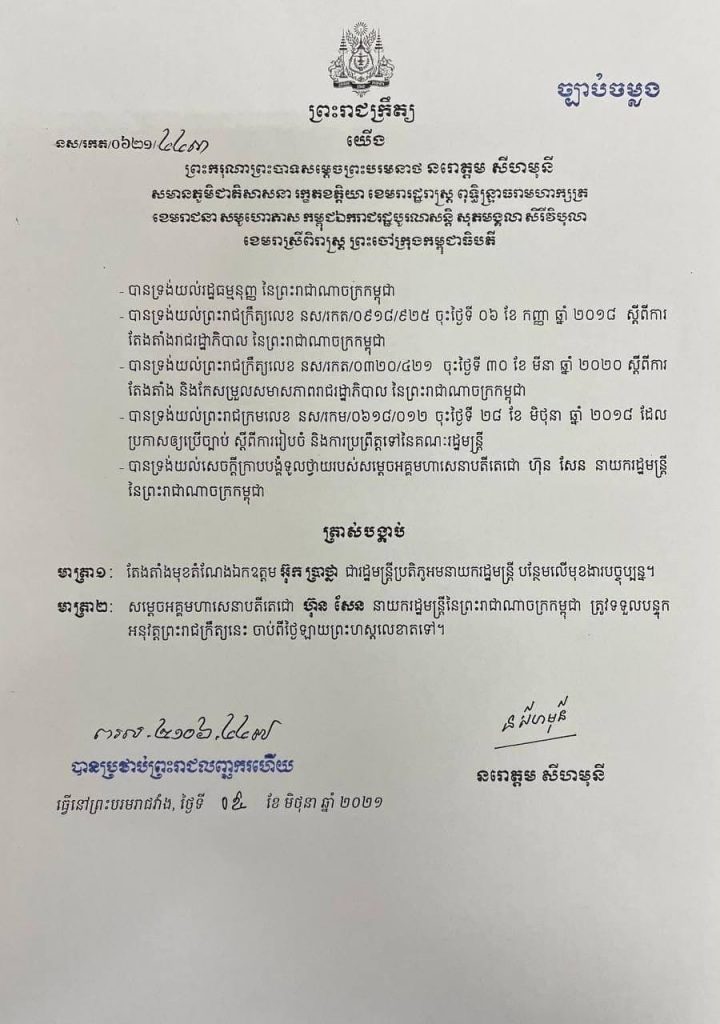 ច្បាប់ចម្លង
ព្រះរាជក្រឹត្យ
នស/រកត/០៦២១/
យើង
ព្រះករុណាព្រះបាទសម្តេចព្រះបរមនាថ នរោត្តម សីហមុនី
សមានភូមិជាតិសាសនា រក្ខតខត្តិយា ខេមរារដ្ឋរាស្ត្រ ពុទ្ធិន្ទ្រាធរាមហាក្សត្រ
ខេមរាជនា សមូហោភាស កម្ពុជឯករាជរដ្ឋបូរណសន្តិ សុភមង្គលា សិរីវិបុលា
ខេមរាស្រីពិរាស្ត្រ ព្រះចៅក្រុងកម្ពុជាធិបតី
- បានទ្រង់យល់រដ្ឋធម្មនុញ្ញ នៃព្រះរាជាណាចក្រកម្ពុជា
- បានទ្រង់យល់ព្រះរាជក្រឹត្យលេខ នស/រកត/០៩១៨/៩២៥ ចុះថ្ងៃទី ០៦ ខែ កញ្ញា ឆ្នាំ ២០១៨ ស្តីពីការ
តែងតាំងរាជរដ្ឋាភិបាល នៃព្រះរាជាណាចក្រកម្ពុជា
- បានទ្រង់យល់ព្រះរាជក្រឹត្យលេខ នស/រកត/០៣២០/៤២១ ចុះថ្ងៃទី ៣០ ខែ មីនា ឆ្នាំ ២០២០ ស្តីពីការ
តែងតាំង និងកែសម្រួលសមាសភាពរាជរដ្ឋាភិបាល នៃព្រះរាជាណាចក្រកម្ពុជា
- បានទ្រង់យល់ព្រះរាជក្រមលេខ នស/រកម/០៦១៨/០១២ ចុះថ្ងៃទី ២៨ ខែ មិថុនា ឆ្នាំ ២០១៨ ដែល
ប្រកាសឲ្យប្រើច្បាប់ ស្តីពីការរៀបចំ និងការប្រព្រឹត្តទៅនៃគណៈរដ្ឋមន្ត្រី
- បានទ្រង់យល់សេចក្តីក្រាបបង្គំទូលថ្វាយរបស់សម្តេចអគ្គមហាសេនាបតីតេជោ ហ៊ុន សែន នាយករដ្ឋមន្ត្រី
នៃព្រះរាជាណាចក្រកម្ពុជា
ត្រាស់បង្គាប់
មាត្រា១: តែងតាំងមុខតំណែងឯកឧត្តម អ៊ុក ប្រាថ្នា ជារដ្ឋមន្ត្រីប្រតិភូអមនាយករដ្ឋមន្ត្រី បន្ថែមលើមុខងារបច្ចុប្បន្ន។
មាត្រា២: សម្តេចអគ្គមហាសេនាបតីតេជោ ហ៊ុន សែន នាយករដ្ឋមន្ត្រីនៃព្រះរាជាណាចក្រកម្ពុជា ត្រូវទទួលបន្ទុក
អនុវត្តព្រះរាជក្រឹត្យនេះ ចាប់ពីថ្ងៃឡាយព្រះហស្តលេខាតទៅ។
បានប្រថាប់ព្រះរាជលញ្ឆករហើយ
នរោត្តម សីហមុនី
ធ្វើនៅព្រះបរមរាជវាំង, ថ្ងៃទី ខែ មិថុនា ឆ្នាំ ២០២១